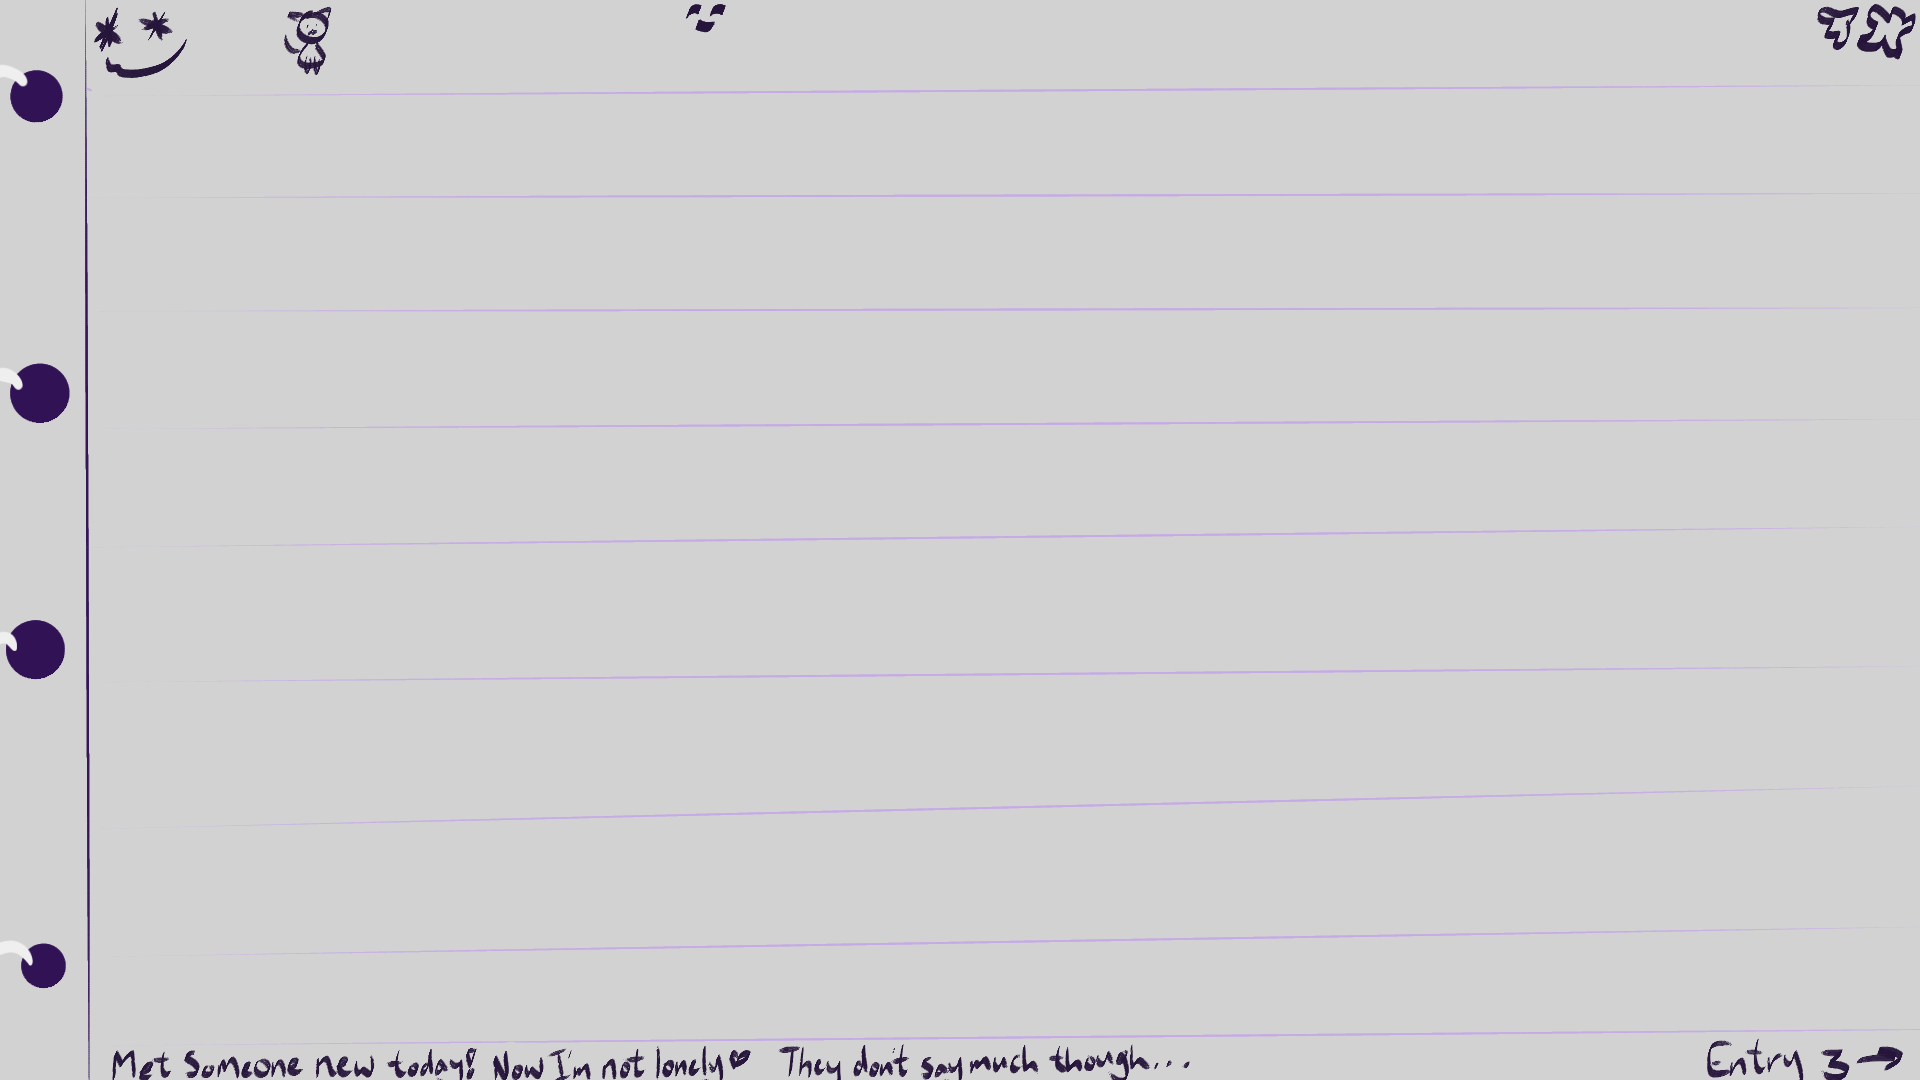 Met Someone new today! Now I'm not lonely♥ They don't say much though...
Entry 3→